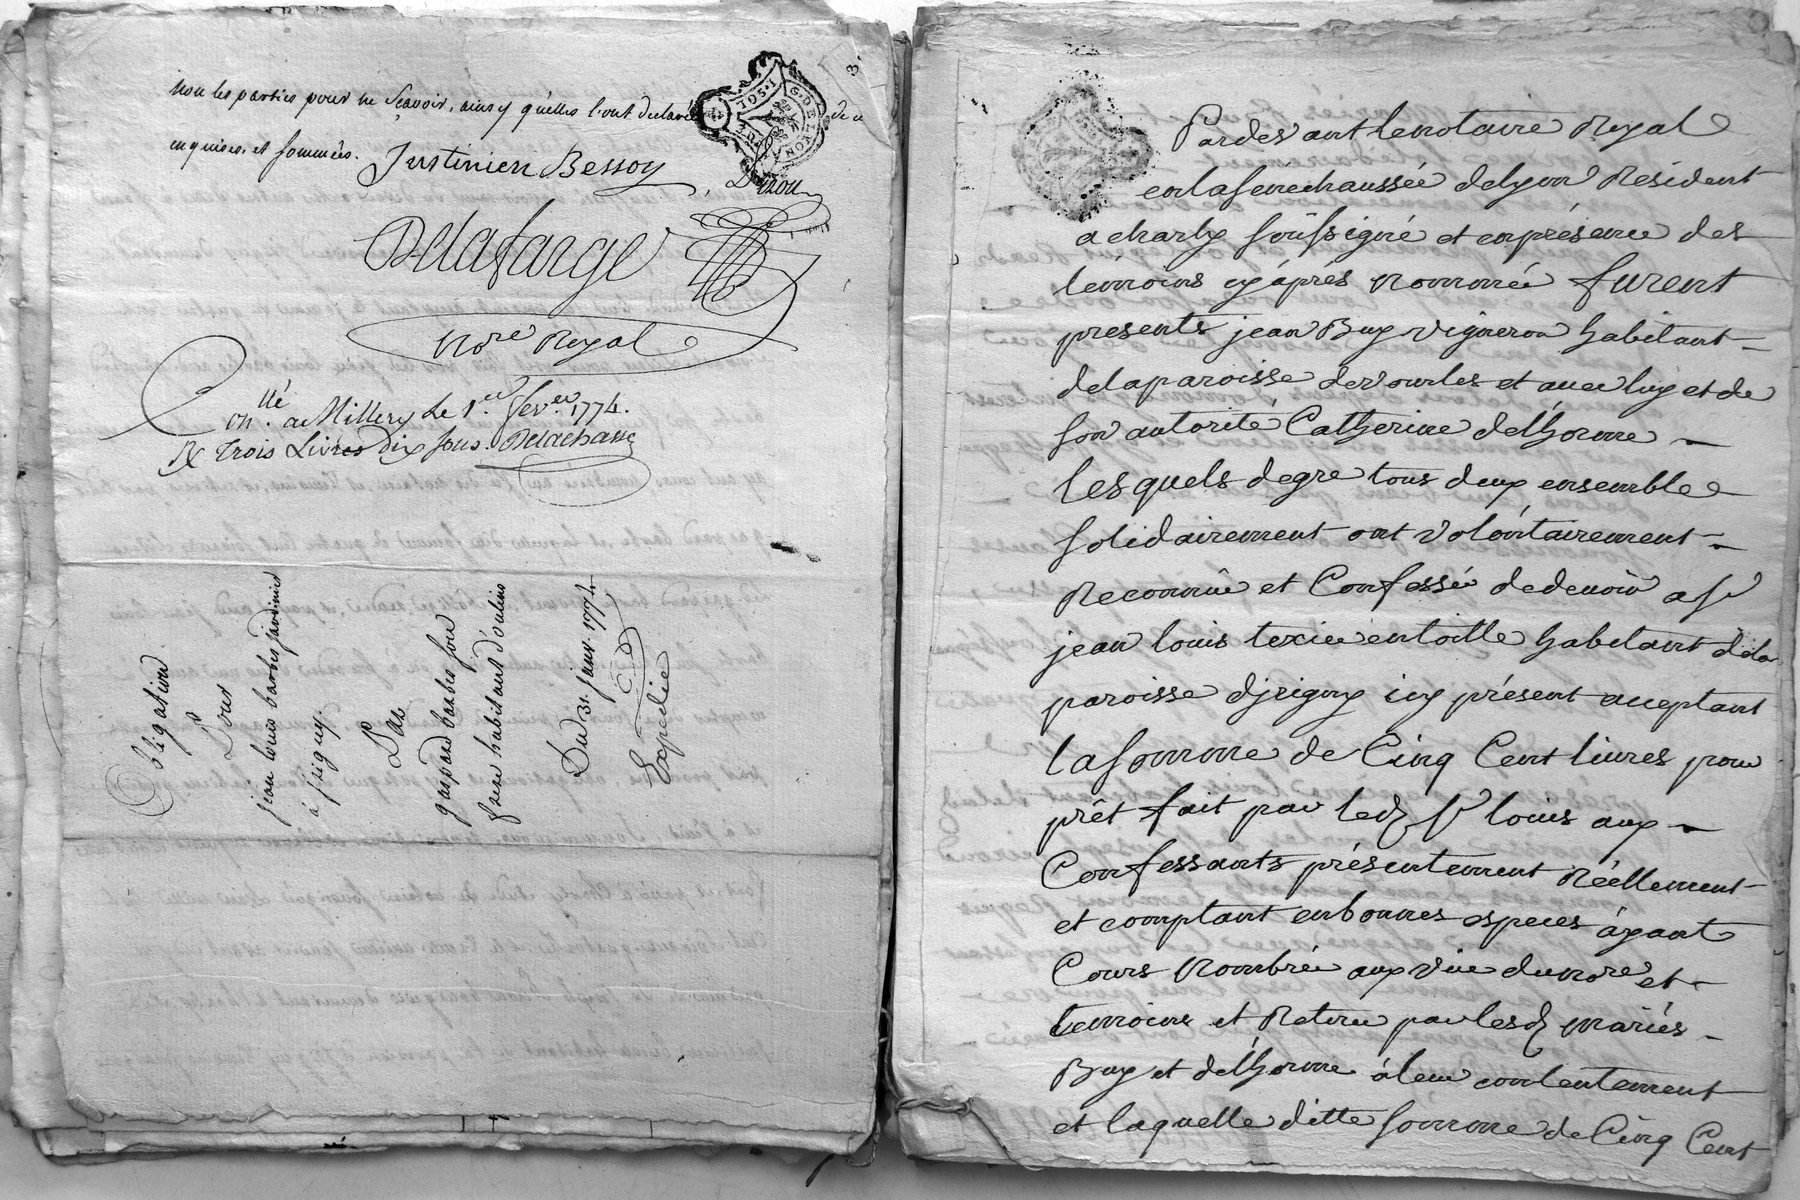 non les parties pour ne Scavoir, ainsy qu'elles l'ont declaré de ce
enquises, et sommées. Justinien Bessoy
Delafarge
No.re Royal
Con.llé a Millery Le 1.er fev.er 1774.
R Trois Livres dix sous. Delachasse
Obligation
Pour
jean louis barbes jardinier
à jrigny.
Par
gaspard barbes son
frere habitant d'oulins
Du 31 janv. 1774
Expediée
G. DE LYON
Pardevant le notaire Royal
en la senechaussée de lyon Resident
a charly soussigné et en présence des
temoins cy après nommés furent
presents jean Buy vigneron habitant
de la paroisse de vourles et avec luy et de
son autorité Catherine delhorme
lesquels de gre tous deux ensemble
solidairement ont volontairement
Reconnu et Confessé de devoir a sr
jean louis texier en toille habitant de la
paroisse djrigny icy présent acceptant
la somme de Cinq Cent livres pour
prêt fait par led sr louis aux
Confessants présentement Réellement
et comptant en bonnes especes àyant
Cours Nombrée aux vüe du nore et
temoins et Retirée par lesd mariés
Buy et delhorme à leur contentement
et laquelle ditte somme de Cinq Cent